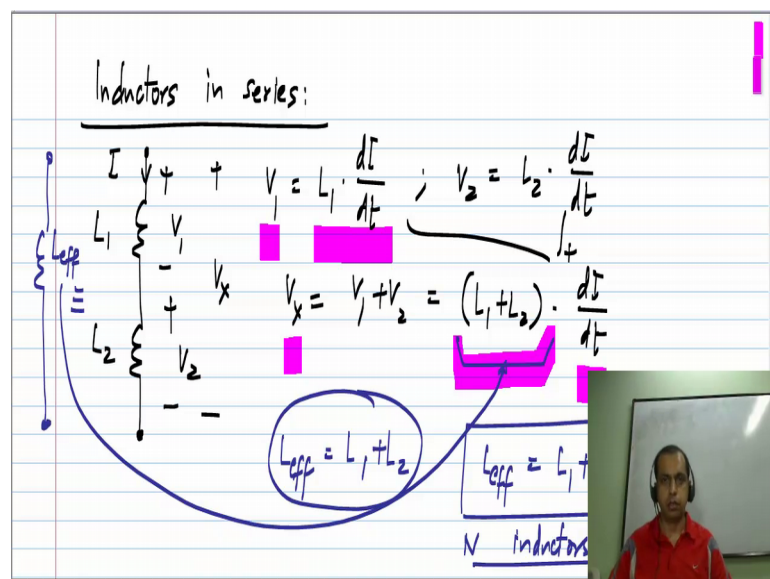 Inductors in series:
I + + V₁ = L₁ · dI/dt ; V₂ = L₂ · dI/dt
L₁ V₁
Leff
≡
- Vₓ
+
Vₓ = V₁ + V₂ = (L₁ + L₂) · dI/dt
L₂ V₂
- -
Leff = L₁ + L₂
Leff = L₁ +
N inductors